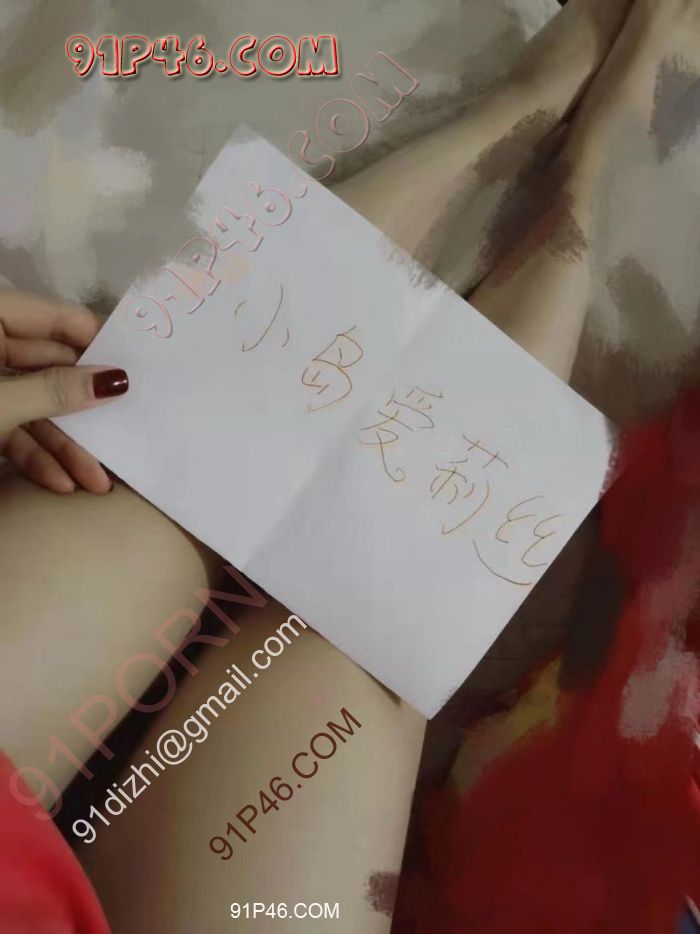 91P46.COM
91P46.COM
小鸟爱莉丝
91PORN
91dizhi@gmail.com
91P46.COM
91P46.COM